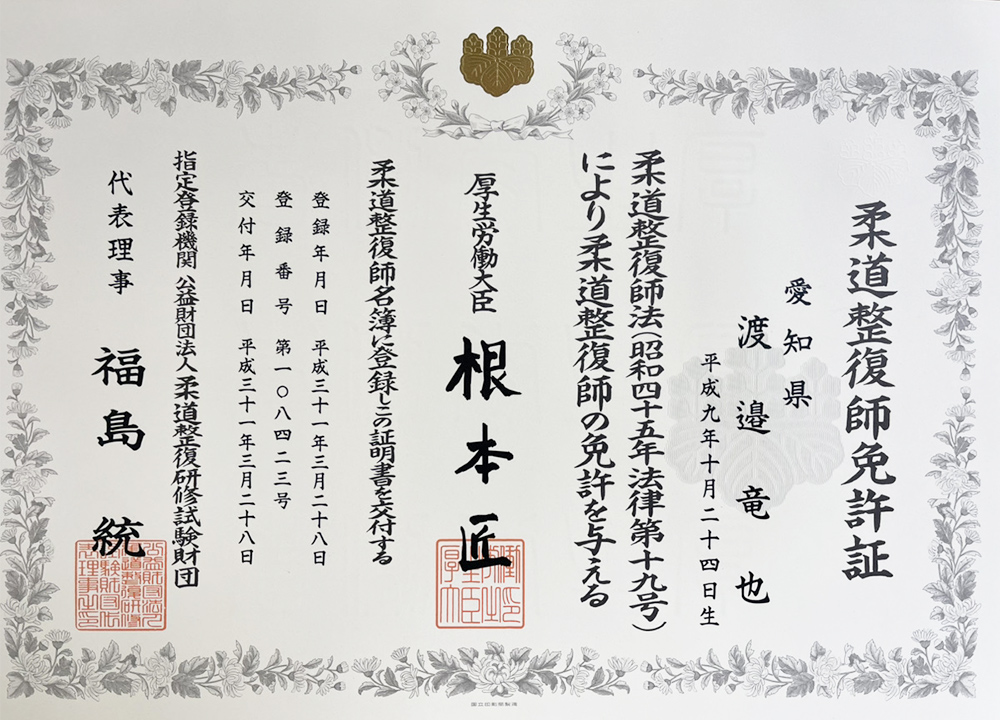 柔道整復師免許証
愛知県
渡邉竜也
平成九年十月二十四日生
柔道整復師法(昭和四十五年法律第十九号)
により柔道整復師の免許を与える
厚生労働大臣 根本匠
柔道整復師名簿に登録しこの証明書を交付する
登録年月日 平成三十一年三月二十八日
登録番号 第一〇八四二三号
交付年月日 平成三十一年三月二十八日
指定登録機関 公益財団法人 柔道整復研修試験財団
代表理事 福島統
国立印刷局製造